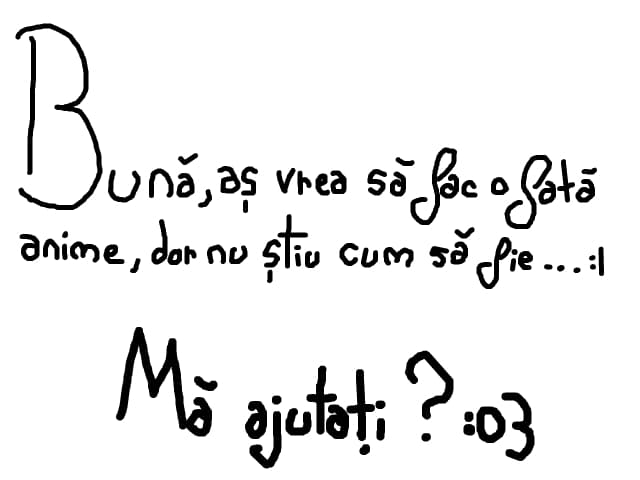 Bună, aș vrea să fac o fată
anime, dar nu știu cum să fie...:|
Mă ajutați? :o3